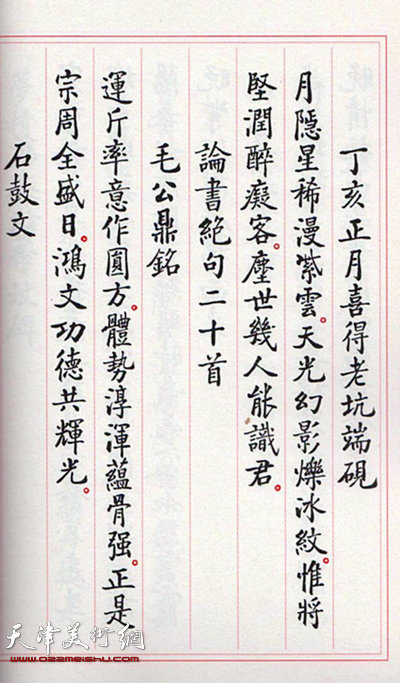 丁亥正月喜得老坑端硯
月隱星稀漫紫雲。天光幻影爍冰紋。惟將
堅潤醉癡客。塵世幾人能識君。
論書絕句二十首
毛公鼎銘
運斤率意作圓方。體勢淳渾蘊骨强。正是
宗周全盛日。鴻文功德共輝光。
石鼓文
天津美術網
www.022meishu.com